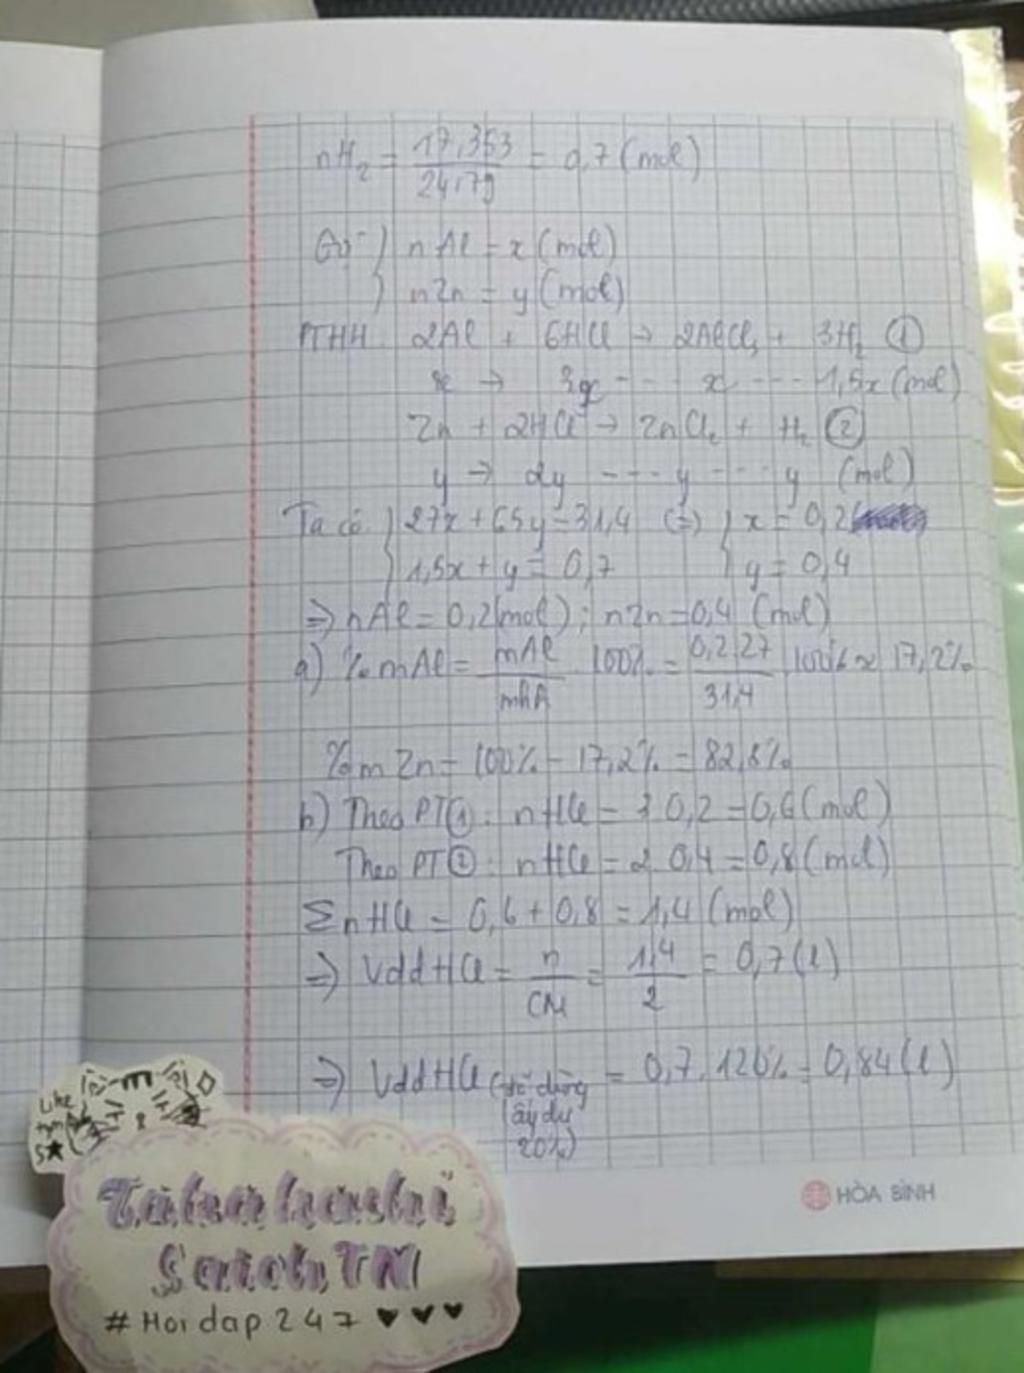 nH₂ = 17,353 / 24,79 = 0,7 (mol)
Gọi { nAl = x (mol)
nZn = y (mol)
PTHH 2Al + 6HCl → 2AlCl₃ + 3H₂ ①
x → 3x --- x --- 1,5x (mol)
Zn + 2HCl → ZnCl₂ + H₂ ②
y → 2y --- y --- y (mol)
Ta có { 27x + 65y = 31,4 (=) { x = 0,2
1,5x + y = 0,7 y = 0,4
⇒ nAl = 0,2 (mol) ; nZn = 0,4 (mol)
a) % mAl = mAl / mhh . 100% = 0,2.27 / 31,4 . 100% ≈ 17,2%
% m Zn = 100% - 17,2% = 82,8%
b) Theo PT① : nHCl = 3.0,2 = 0,6 (mol)
Theo PT② : nHCl = 2.0,4 = 0,8 (mol)
Σ nHCl = 0,6 + 0,8 = 1,4 (mol)
⇒ VddHCl = n / CM = 1,4 / 2 = 0,7 (l)
⇒ VddHCl (đã dùng = 0,7.120% = 0,84 (l)
lấy dư
20%)
HÒA BÌNH
Like
5★
#Hoidap247 ♥♥♥